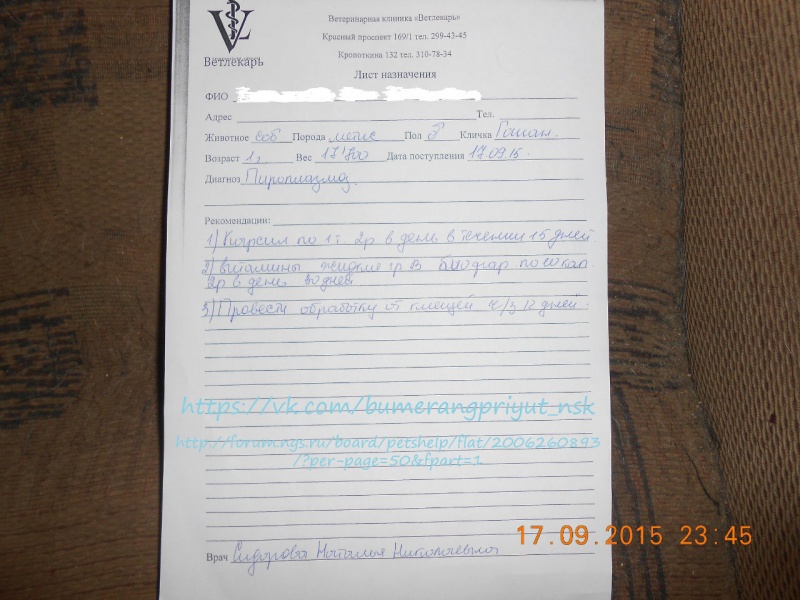 Ветлекарь
Ветеринарная клиника «Ветлекарь»
Красный проспект 169/1 тел. 299-43-45
Кропоткина 132 тел. 310-78-34
Лист назначения
ФИО
Адрес Тел.
Животное соб Порода метис Пол Кличка Гошан.
Возраст 1г. Вес 17'800 Дата поступления 17.09.15.
Диагноз Пироплазмоз.
Рекомендации:
1) Карсил по 1т 2р в день в течении 15 дней.
2) Витамины жидкие гр В биофар по 20 кап.
2р в день 30 дней
3) Провести обработку от клещей ч/з 12 дней.
https://vk.com/bumerangpriyut_nsk
http://forum.ngs.ru/board/petshelp/flat/2006260893
/?per-page=50&fpart=1
17.09.2015 23:45
Врач Сидорова Наталья Николаевна